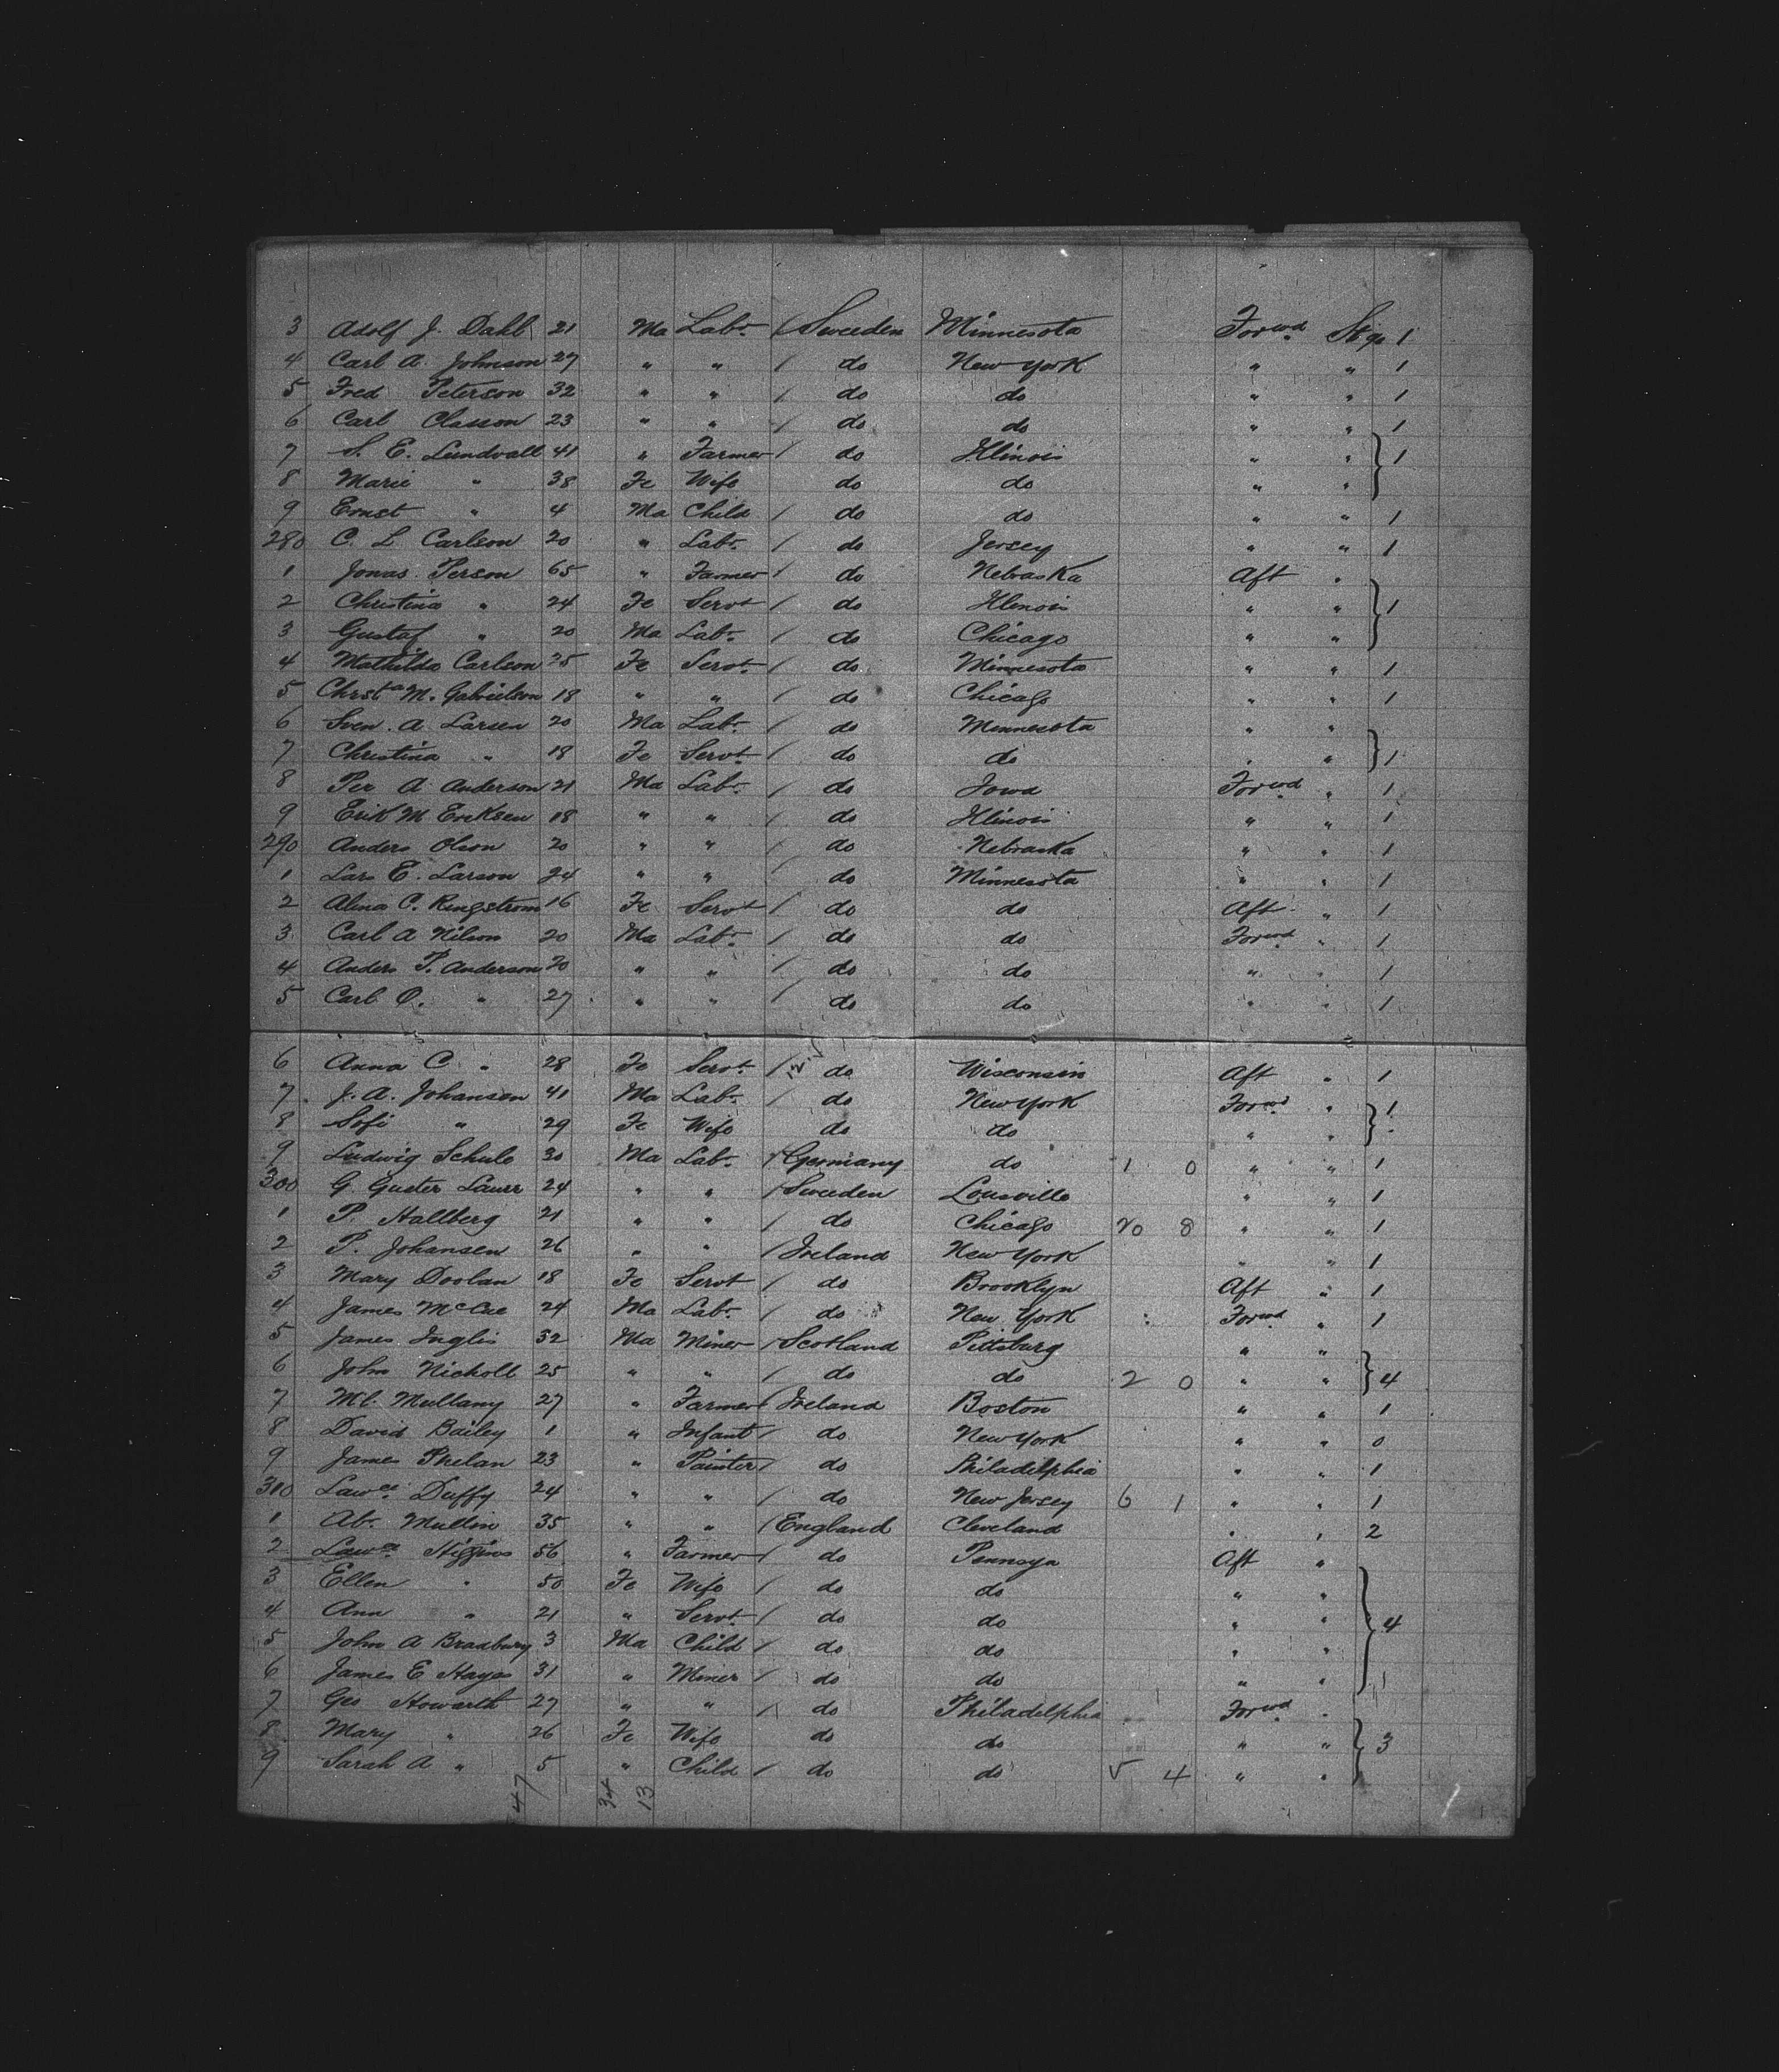 3 Adolf J. Dahl 21 Ma Labr. / Sweeden Minnesota Forwd Stge 1
4 Carl A. Johnson 27 " " / do New York " " 1
5 Fred Peterson 32 " " / do do " " 1
6 Carl Classon 23 " " / do do " " 1
7 S. E. Lundvall 41 " Farmer / do Illinois " " } 1
8 Marie " 38 Fe Wife do do " "
9 Ernst " 4 Ma Child / do do " " 1
280 C. L Carlson 20 " Labr. / do Jersey " " 1
1 Jonas Person 65 " Farmer / do Nebraska Aft "
2 Christina " 24 Fe Servt / do Illenois " " } 1
3 Gustaf " 20 Ma Labr. / do Chicago " "
4 Mathilda Carlson 25 Fe Servt. / do Minnesota " " 1
5 Chrsta M. Gabrielson 18 " " / do Chicago " " 1
6 Sven. A. Larsen 20 Ma Labr. / do Minnesota " "
7 Christina " 18 Fe Servt. / do do " " } 1
8 Per A Anderson 21 Ma Labr. / do Iowa Forwd " 1
9 Erik M Eriksen 18 " " / do Illinois " " 1
290 Anders Olson 20 " " / do Nebraska " " 1
1 Lars E. Larson 24 " " / do Minnesota " " 1
2 Alma C. Ringstrom 16 Fe Servt / do do Aft " 1
3 Carl A Nilson 20 Ma Labr. / do do Forwd " 1
4 Anders P. Anderson 20 " " / do do " " 1
5 Carl O. " 27 " " / do do " " 1
6 Anna C " 28 Fe Servt. / do Wisconsin Aft " 1
7 J. A. Johanson 41 Ma Labr. / do New York Forwd " } 1
8 Sofi " 29 Fe Wife do do " "
9 Ludwig Schule 30 Ma Labr. / Germany do 1 0 " " 1
300 G Guster Laurr 24 " " / Sweeden Lousville " " 1
1 P. Hallberg 21 " " / do Chicago 20 8 " " 1
2 P. Johansen 26 " " / Ireland New York " " 1
3 Mary Doolan 18 Fe Servt / do Brooklyn Aft " 1
4 James McCue 24 Ma Labr. / do New York Forwd " 1
5 James Inglis 32 Ma Miner / Scotland Pittsburg " "
6 John Nicholl 25 " " / do do 2 0 " " } 4
7 Ml. Mullany 27 " Farmer / Ireland Boston " " 1
8 David Bailey 1 " Infant / do New York " " 0
9 James Phelan 23 " Painter / do Philadelphia " " 1
310 Lawce Duffy 24 " " / do New Jersey 6 1 " " 1
1 Ab. Mullin 35 " " / England Cleveland " " 2
2 Lawce Higgins 56 " Farmer / do Pennsyn Aft "
3 Ellen " 50 Fe Wife / do do " "
4 Ann " 21 " Servt / do do " " } 4
5 John A Bradbury 3 Ma Child / do do " "
6 James E Hayes 31 " Miner / do do " " 1
7 Geo Howarth 27 " " / do Philadelphia Forwd "
8 Mary " 26 Fe Wife do do " " } 3
9 Sarah A " 5 " Child / do do 5 4 " "
47 34 13